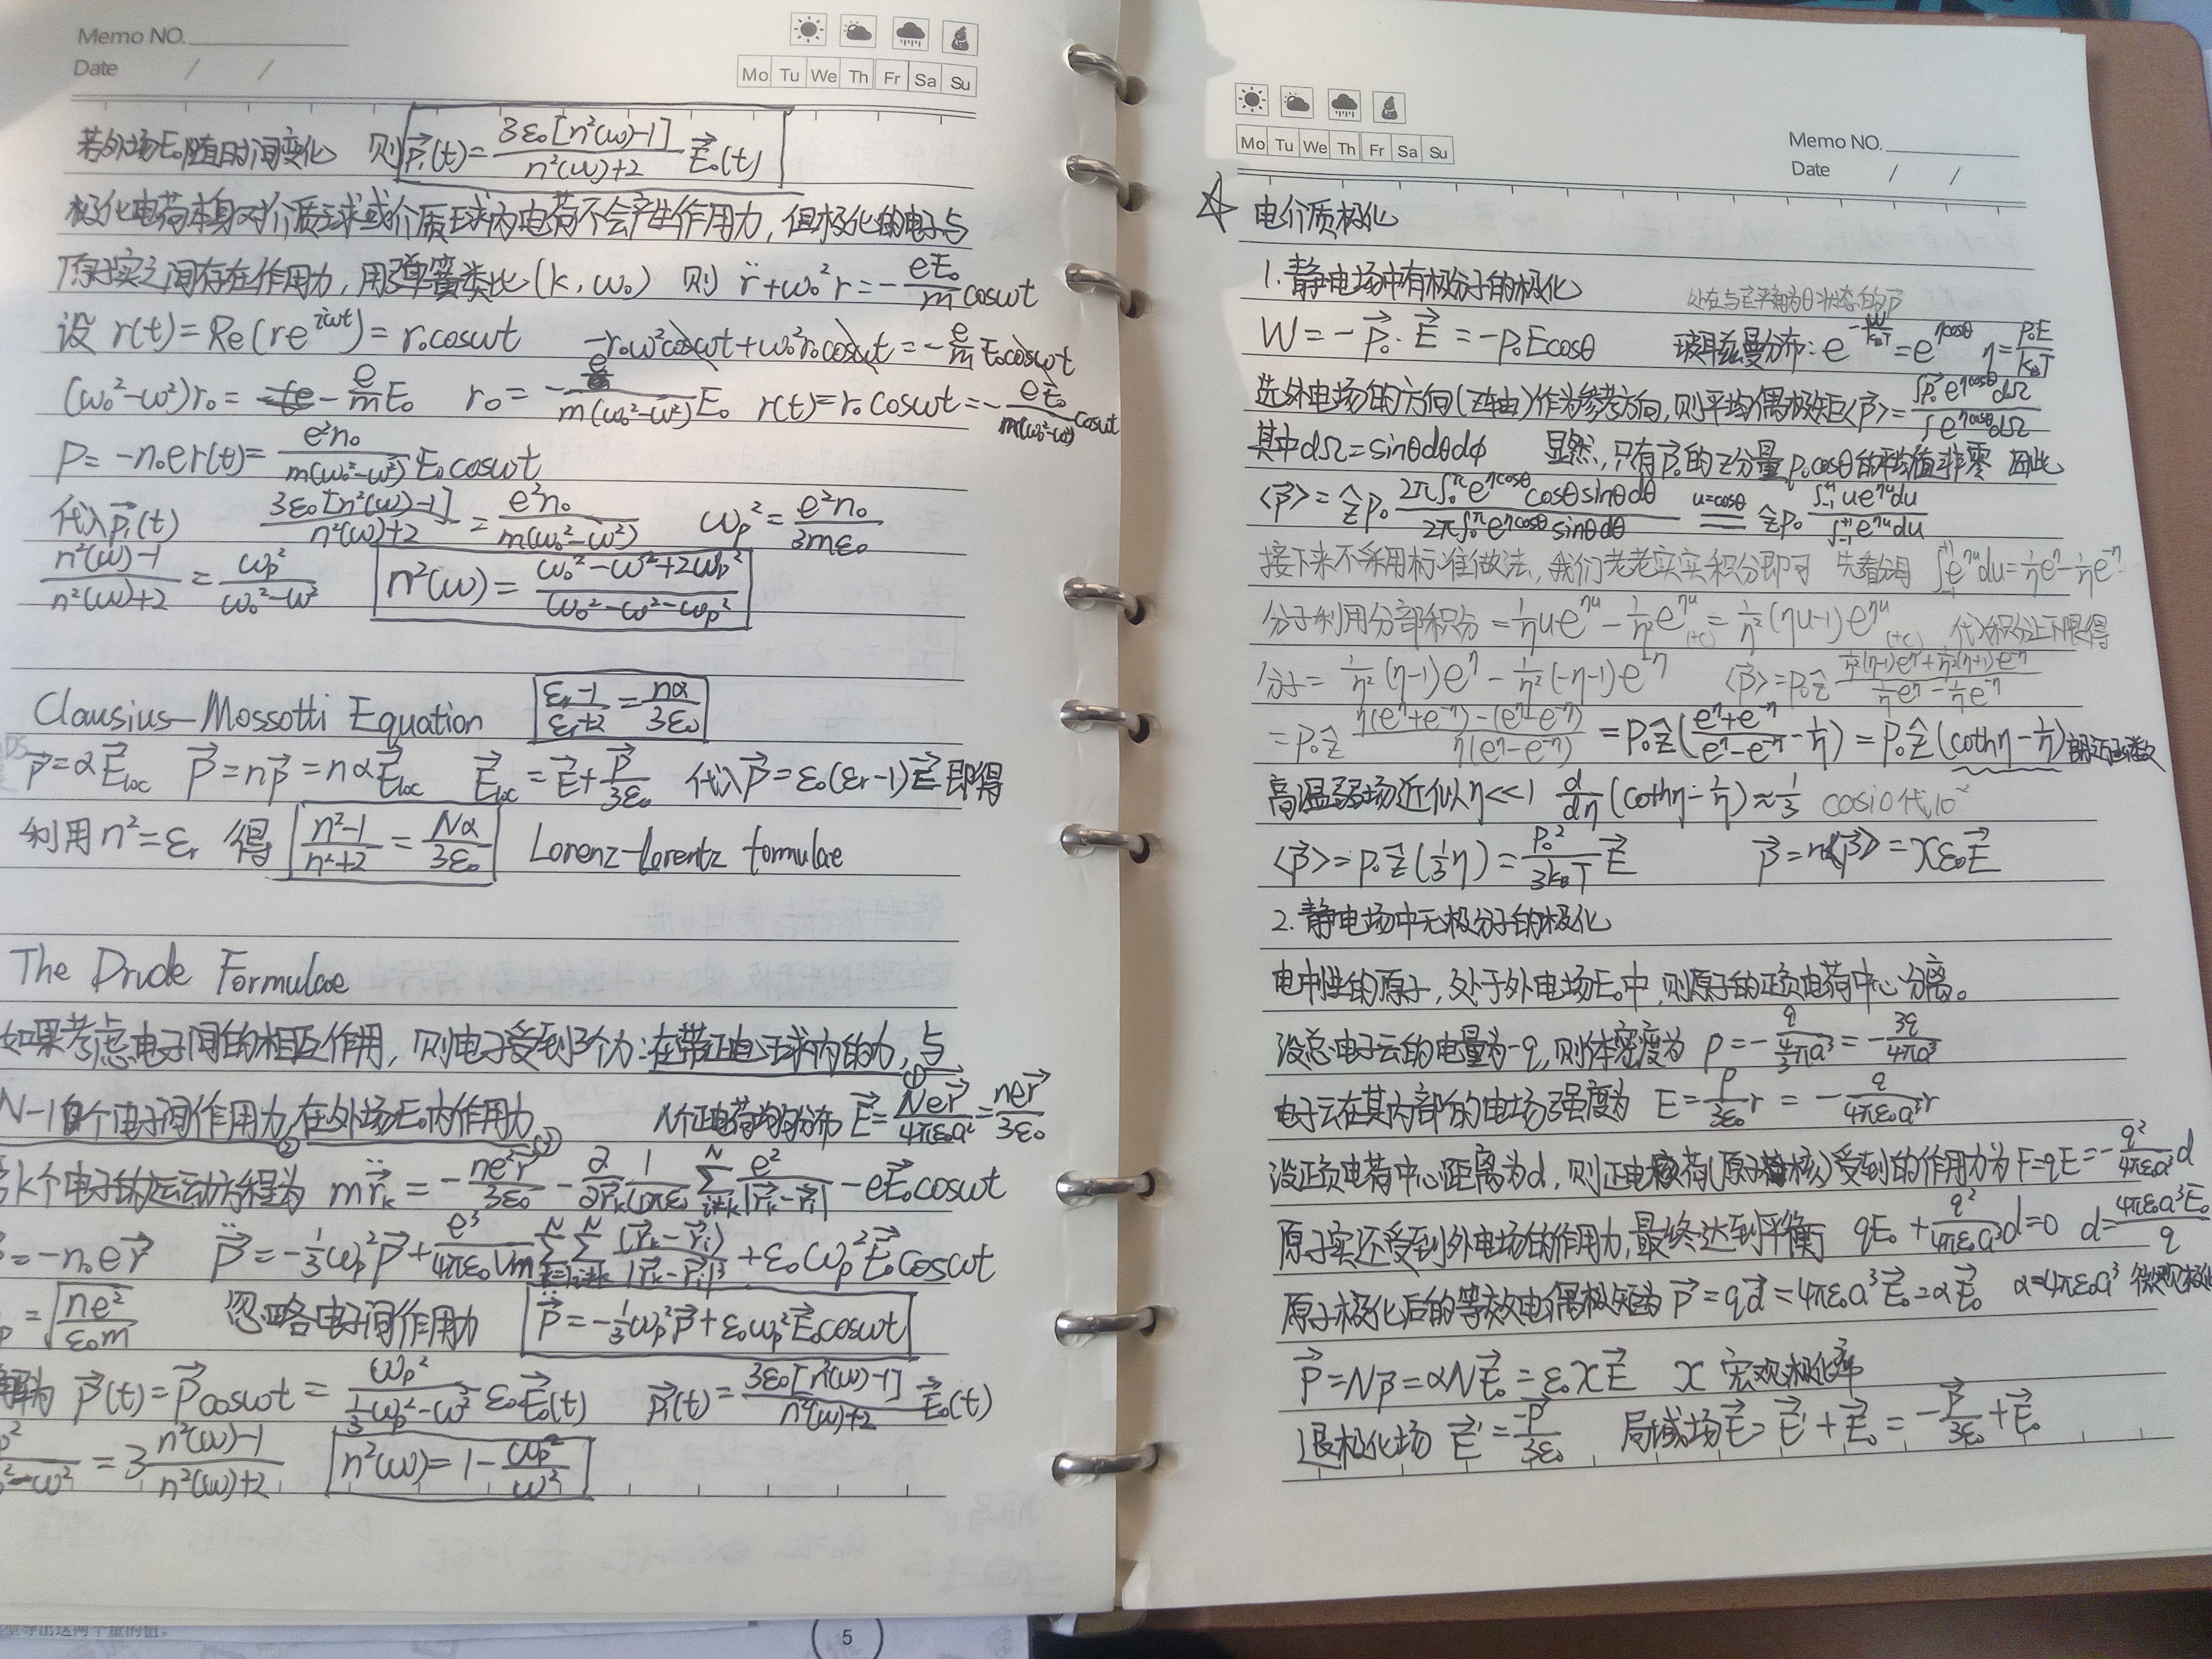 Memo NO.
Date / /
Mo Tu We Th Fr Sa Su
若外场E₀随时间变化 则 p⃗₁(t)=3ε₀[n²(ω)-1]/(n²(ω)+2) E⃗₀(t)
极化电荷本身对介质球或介质球内电荷不会产生作用力，但极化的电子与
原子实之间存在作用力，用弹簧类比(k，ω₀) 则 r̈+ω₀²r=-eE₀/m cosωt
设 r(t)=Re(re^{iωt})=r₀cosωt -r₀ω²cosωt+ω₀²r₀cosωt=-e/m E₀cosωt
(ω₀²-ω²)r₀= -e/m E₀ r₀=-e/(m(ω₀²-ω²)) E₀ r(t)=r₀cosωt=-eE₀/(m(ω₀²-ω²)) cosωt
P=-n₀er(t)=e²n₀/(m(ω₀²-ω²)) E₀cosωt
代入p⃗₁(t) 3ε₀[n²(ω)-1]/(n²(ω)+2)=e²n₀/(m(ω₀²-ω²)) ωp²=e²n₀/(3mε₀)
(n²(ω)-1)/(n²(ω)+2)=ωp²/(ω₀²-ω²) n²(ω)=(ω₀²-ω²+2ωp²)/(ω₀²-ω²-ωp²)
Clausius-Mossotti Equation (εr-1)/(εr+2)=nα/(3ε₀)
p⃗=αE⃗loc P⃗=np⃗=nαE⃗loc E⃗loc=E⃗+P⃗/(3ε₀) 代入P⃗=ε₀(εr-1)E⃗ 即得
利用n²=εr 得 (n²-1)/(n²+2)=Nα/(3ε₀) Lorenz-Lorentz formulae
The Drude Formulae
如果考虑电子间的相互作用，则电子受到3个力：在带正电球内的力，与 ①
N-1个电子间作用力②，在外场E₀内作用力③ N个正电荷均匀分布 E⃗=Ner⃗/(4πε₀a²)=ner⃗/(3ε₀)
k个电子的运动方程为 mr̈⃗k=-ne²r⃗/(3ε₀)-∂/∂r⃗k 1/(4πε₀) Σ^N_{i≠k} e²/|r⃗k-r⃗i| -eE⃗₀cosωt
=-n₀er⃗ P̈⃗=-1/3 ωp²P⃗+e³/(4πε₀Vm) Σ^N_{k=1} Σ^N_{i≠k} (r⃗k-r⃗i)/|r⃗k-r⃗i|³ +ε₀ωp²E⃗₀cosωt
=√(ne²/(ε₀m)) 忽略电子间作用力 P̈⃗=-1/3 ωp²P⃗+ε₀ωp²E⃗₀cosωt
解为 P⃗(t)=P⃗cosωt=ωp²/(1/3 ωp²-ω²) ε₀E⃗₀(t) p⃗₁(t)=3ε₀[n²(ω)-1]/(n²(ω)+2) E⃗₀(t)
=3 (n²(ω)-1)/(n²(ω)+2) n²(ω)=1-ωp²/ω²
Mo Tu We Th Fr Sa Su
Memo NO.
Date / /
☆ 电介质极化
1.静电场中有极分子的极化
处在与E⃗夹角为θ状态的p⃗
W=-p⃗₀·E⃗=-p₀Ecosθ 玻耳兹曼分布：e^{-W/(kBT)}=e^{ηcosθ} η=p₀E/(kBT)
选外电场的方向(z轴)作为参考方向，则平均偶极矩<p⃗>=∫p⃗₀e^{ηcosθ}dΩ/∫e^{ηcosθ}dΩ
其中dΩ=sinθdθdφ 显然，只有p⃗₀的z分量p₀cosθ的平均值非零 因此
<p⃗>=ẑp₀ 2π∫₀^π e^{ηcosθ}cosθsinθdθ/(2π∫₀^π e^{ηcosθ}sinθdθ) =(u=cosθ) ẑp₀ ∫₋₁^{+1}ue^{ηu}du/∫₋₁^{+1}e^{ηu}du
接下来不采用标准做法，我们老老实实积分即可 先看分母 ∫₋₁^{+1}e^{ηu}du=1/η e^η-1/η e^{-η}
分子利用分部积分=1/η ue^{ηu}-1/η² e^{ηu}(+C)=1/η²(ηu-1)e^{ηu}(+C) 代入积分上下限得
分子=1/η²(η-1)e^η-1/η²(-η-1)e^{-η} <p⃗>=p₀ẑ (1/η²(η-1)e^η+1/η²(η+1)e^{-η})/(1/η e^η-1/η e^{-η})
=p₀ẑ (η(e^η+e^{-η})-(e^η-e^{-η}))/(η(e^η-e^{-η}))=p₀ẑ((e^η+e^{-η})/(e^η-e^{-η})-1/η)=p₀ẑ(cothη-1/η) 朗之万函数
高温弱场近似η<<1 d/dη(cothη-1/η)≈1/3 casio代10⁻²
<p⃗>=p₀ẑ(1/3 η)=p₀²/(3kBT) E⃗ P⃗=n<p⃗>=χε₀E⃗
2.静电场中无极分子的极化
电中性的原子，处于外电场E₀中，则原子的正负电荷中心分离。
设总电子云的电量为-q，则体密度为 ρ=-q/(4/3 πa³)=-3q/(4πa³)
电子云在其内部的电场强度为 E=ρ/(3ε₀) r=-q/(4πε₀a³) r
设正负电荷中心距离为d，则正电荷(原子核)受到的作用力为F=qE=-q²/(4πε₀a³) d
原子实还受到外电场的作用力，最终达到平衡 qE₀+q²/(4πε₀a³) d=0 d=4πε₀a³E₀/q
原子极化后的等效电偶极矩为 p⃗=qd⃗=4πε₀a³E⃗₀=αE⃗₀ α=4πε₀a³ 微观极化
P⃗=Np⃗=αNE⃗₀=ε₀χE⃗ χ 宏观极化率
退极化场 E⃗'=-P⃗/(3ε₀) 局域场E⃗=E⃗'+E⃗₀=-P⃗/(3ε₀)+E⃗₀
5